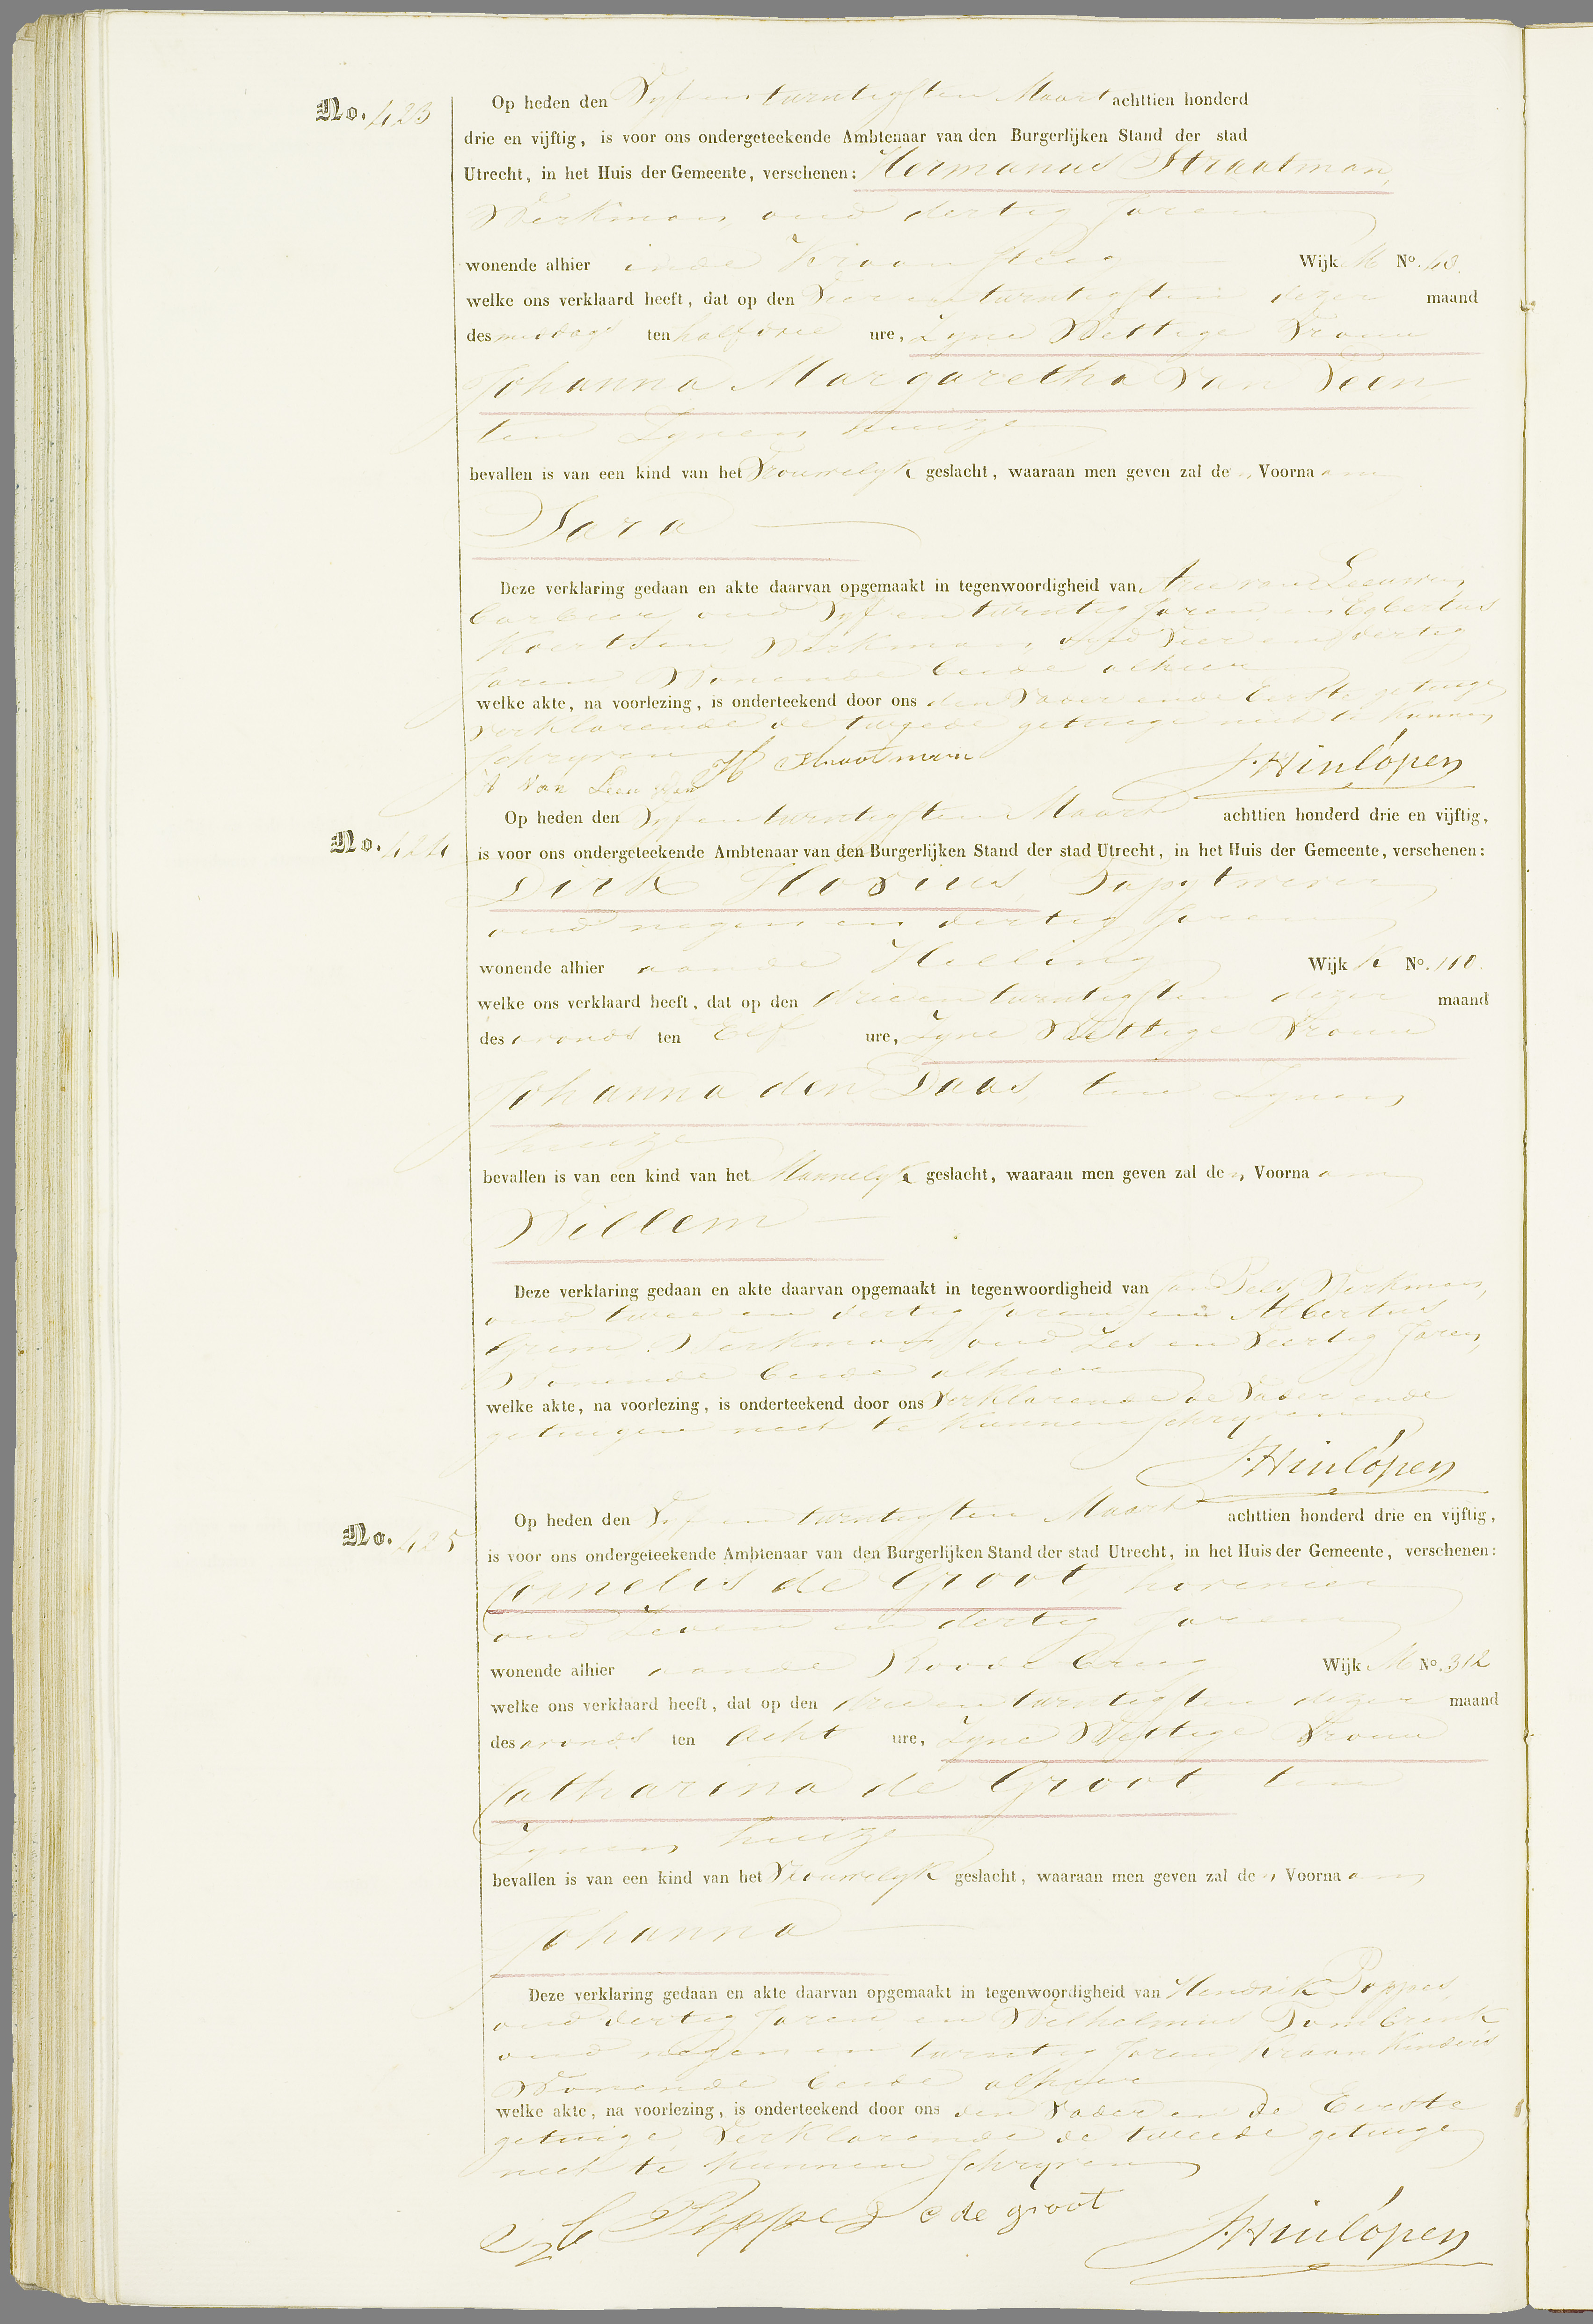 No. 423
Op heden den Vyf en twentigsten Maart achttien honderd
drie en vijftig, is voor ons ondergeteekende Ambtenaar van den Burgerlijken Stand der stad
Utrecht, in het Huis der Gemeente, verschenen: Hermanus Straatman,
Werkman, oud dertig Jaren
wonende alhier inde Kroonsteeg Wijk M No. 48.
welke ons verklaard heeft, dat op den Vier en twentigsten dezer maand
des middags ten half drie ure, Zyne Wettige Vrouw
Johanna Margaretha van Veen
ten Zynen huize
bevallen is van een kind van het Vrouwelyk geslacht, waaraan men geven zal den Voornaam
Sara
Deze verklaring gedaan en akte daarvan opgemaakt in tegenwoordigheid van Arie van Leeuwen
barbier, oud Vyf en twentig Jaren, en Egbertus
Koertsen, Werkman, oud Vier en veertig
Jaren Wonende beide alhier
welke akte, na voorlezing, is onderteekend door ons den Vader en de Eerste getuige
Verklarende de tweede getuige niet te kunnen
Schryven
H Straatman
A Van Leeuwen
J. Hinlópen
No. 424
Op heden den Vyf en twentigsten Maart achttien honderd drie en vijftig,
is voor ons ondergeteekende Ambtenaar van den Burgerlijken Stand der stad Utrecht, in het Huis der Gemeente, verschenen:
Dirk Hovius, Tapytwever
oud negen en dertig Jaren
wonende alhier aan de Helling Wijk K No. 110.
welke ons verklaard heeft, dat op den drie en twentigsten dezer maand
des avonds ten Elf ure, Zyne Wettige Vrouw
Johanna den Daas, ten Zynen
huize
bevallen is van een kind van het Mannelyk geslacht, waaraan men geven zal den Voornaam
Willem
Deze verklaring gedaan en akte daarvan opgemaakt in tegenwoordigheid van Jan Pels, Werkman,
oud twee en dertig Jaren, en Albertus
Grim, Werkman, oud Zes en Veertig Jaren,
Wonende beide alhier
welke akte, na voorlezing, is onderteekend door ons Verklarende de Vader en de
getuigen niet te kunnen Schryven
J. Hinlópen
No. 425
Op heden den Vyf en twentigsten Maart achttien honderd drie en vijftig,
is voor ons ondergeteekende Ambtenaar van den Burgerlijken Stand der stad Utrecht, in het Huis der Gemeente, verschenen:
Cornelis de Groot, hovenier
oud Zeven en dertig Jaren
wonende alhier aan de Roode brug Wijk M No. 312
welke ons verklaard heeft, dat op den drie en twentigsten dezer maand
des avonds ten Acht ure, Zyne Wettige Vrouw
Catharina de Groot ten
Zynen huize
bevallen is van een kind van het Vrouwelyk geslacht, waaraan men geven zal den Voornaam
Johanna
Deze verklaring gedaan en akte daarvan opgemaakt in tegenwoordigheid van Hendrik Poppes,
oud dertig Jaren, en Wilhelmus
oud negen en twentig Jaren Kraankinders
Wonende beide alhier
welke akte, na voorlezing, is onderteekend door ons den Vader en de Eerste
getuige, Verklarende de tweede getuige
niet te kunnen Schryven
Poppes C de groot
J. Hinlópen